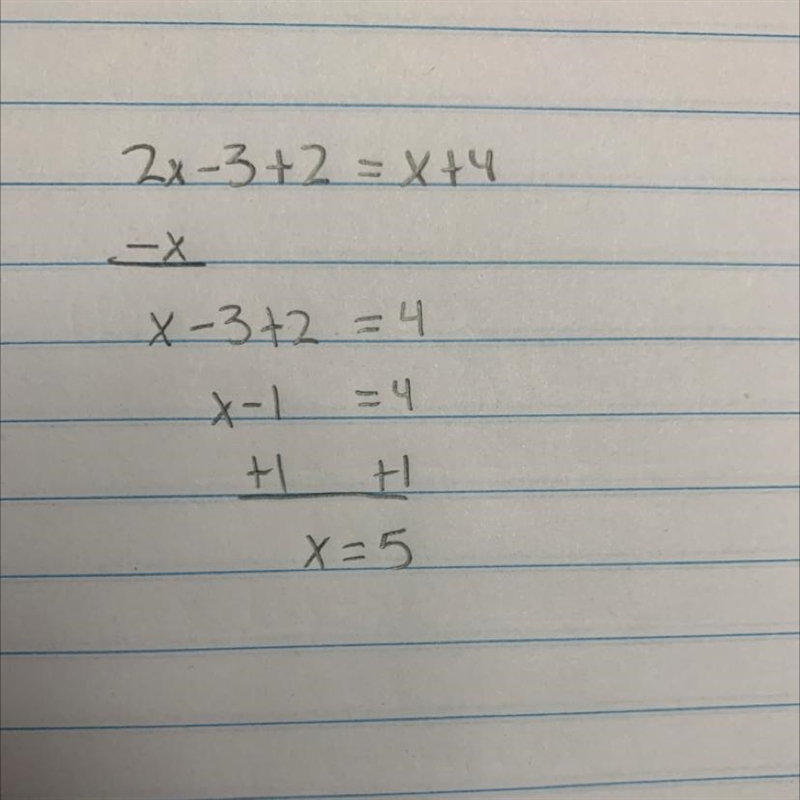 2x-3+2 = x+4
-x
x-3+2 = 4
x-1 = 4
+1 +1
x=5